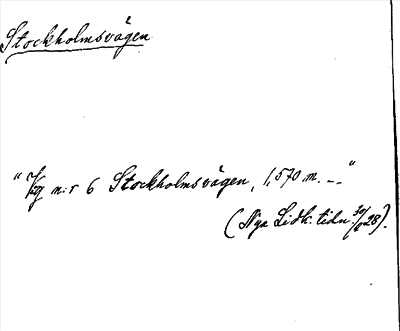 Stockholmsvägen
"Väg n:r 6 Stockholmsvägen, 1,570 m. –"
(Nya Lidk. tidn. 30/6 28).